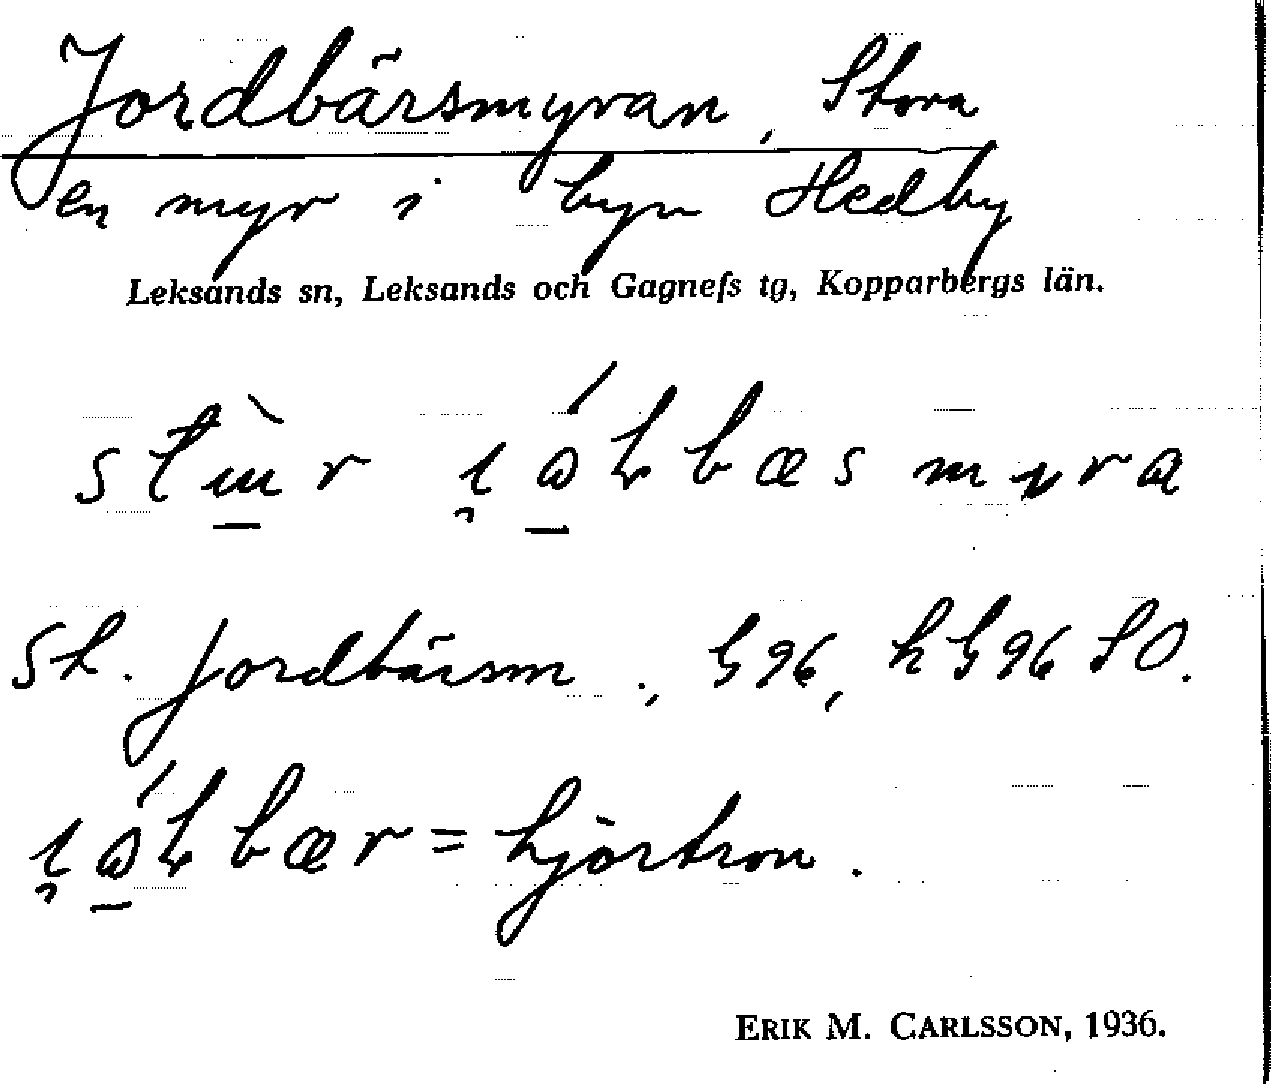 Jordbärsmyran, Stora
en myr i byn Hedby
Leksands sn, Leksands och Gagnefs tg, Kopparbergs län.
St. Jordbärsm., G 96, k G 96 SO.
= hjortron.
ERIK M. CARLSSON, 1936.